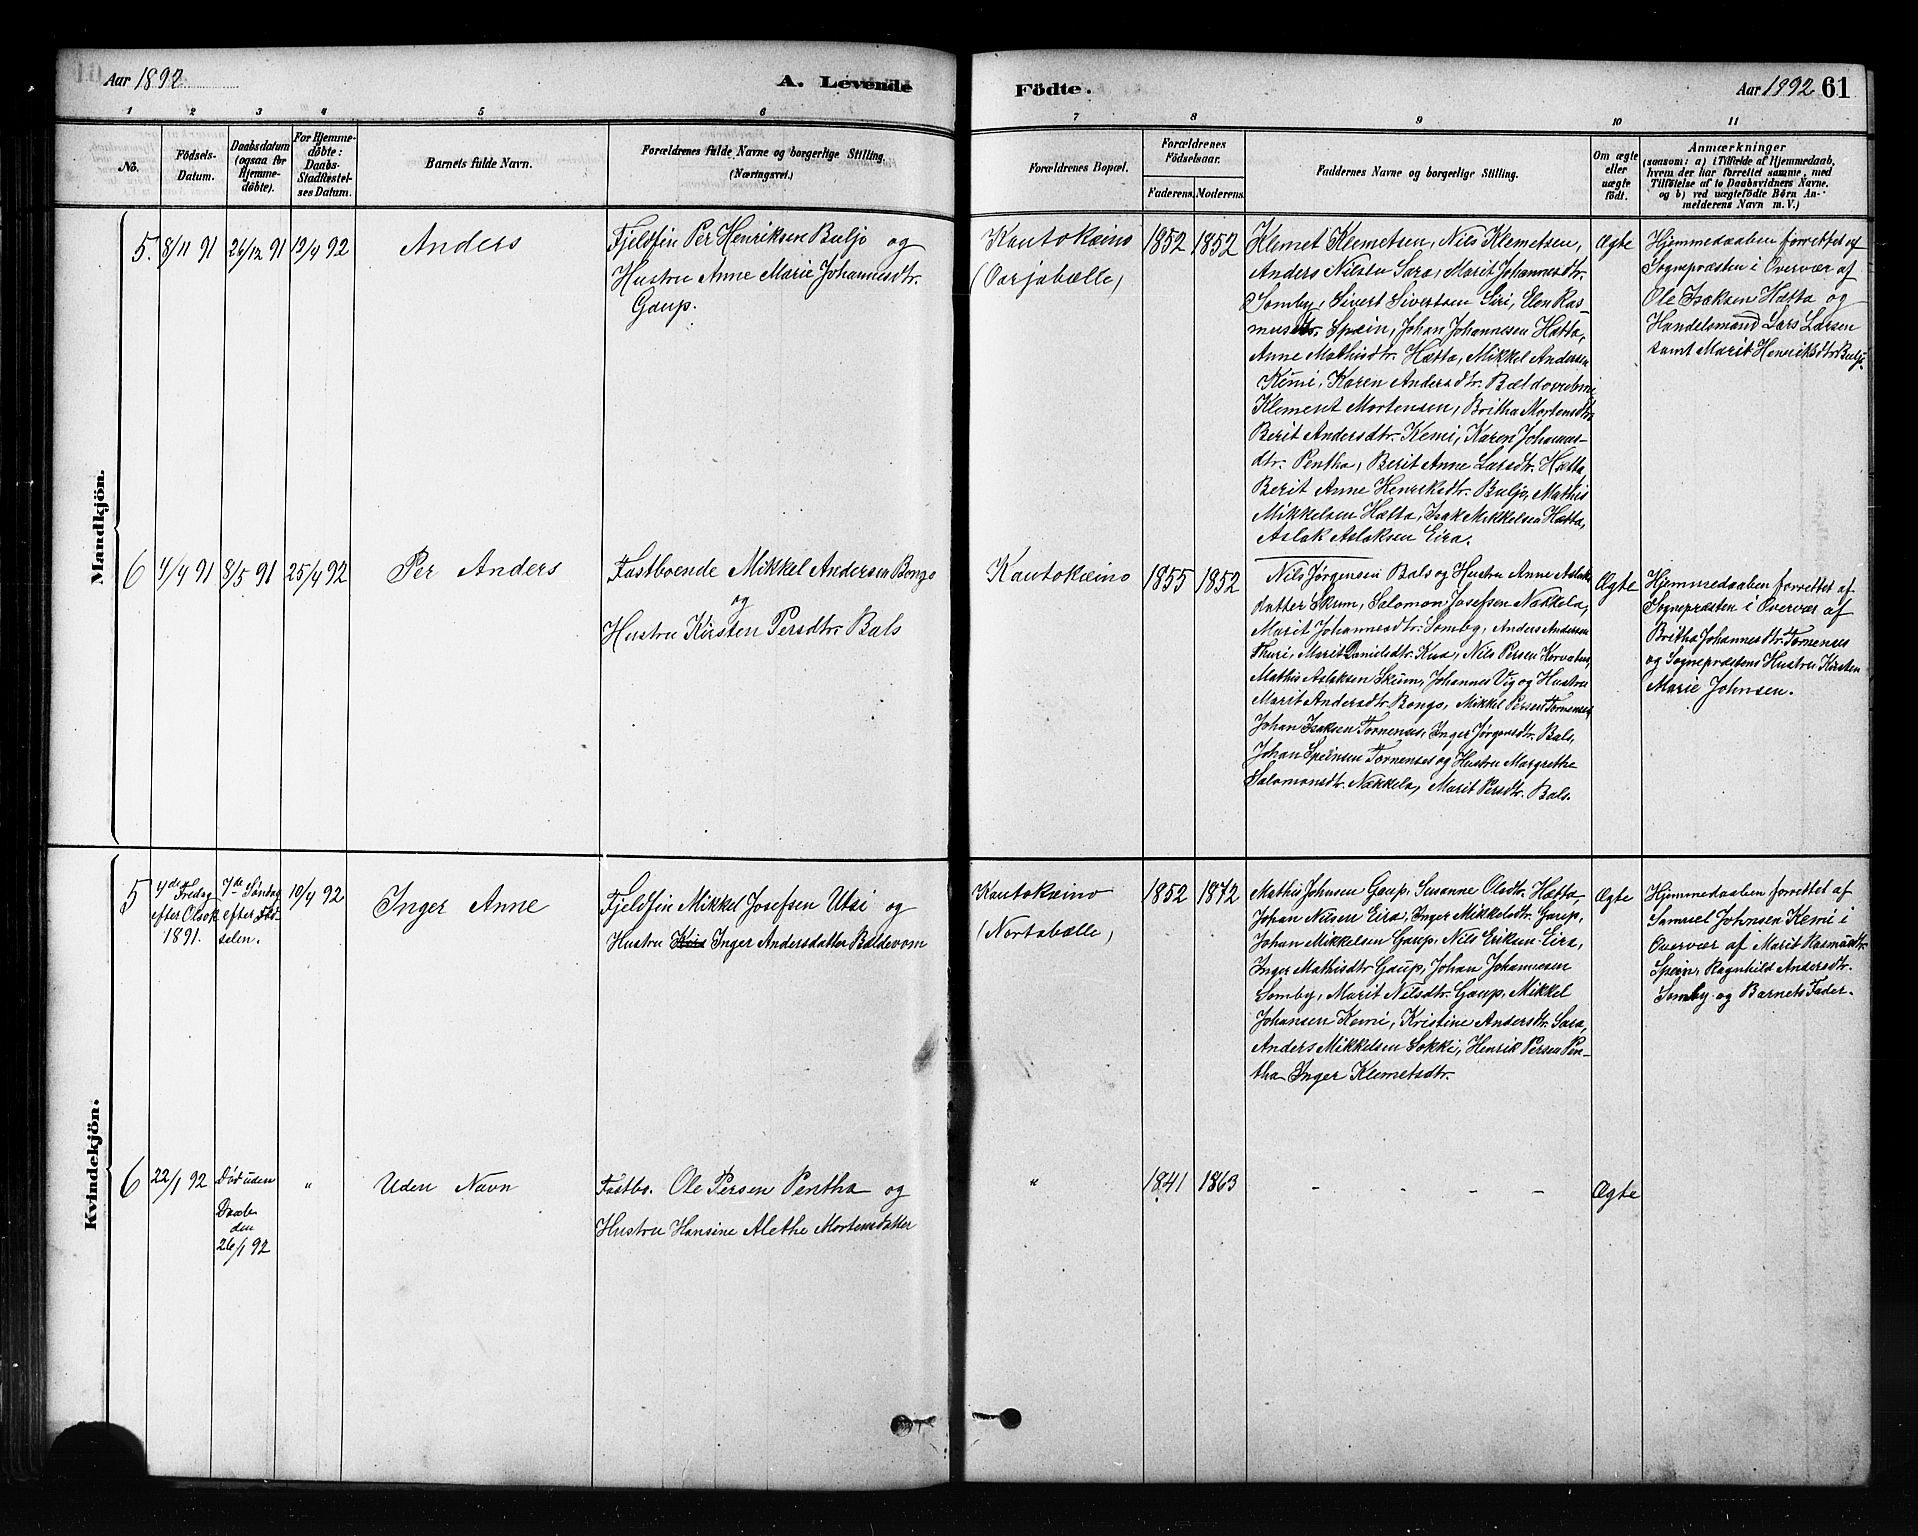 Aar 1892
A. Levende
Födte.
Aar 1892 61
1 2 3 4 5 6 7 8 9 10 11
No.
Födsels-
Datum.
Daabsdatum
(ogsaa for
Hjemme-
døbte).
For Hjemme-
døbte:
Daabs-
Stadfæstel-
ses Datum.
Barnets fulde Navn.
Forældrenes fulde Navne og borgerlige Stilling.
(Næringsvei.)
Forældrenes Bopæl.
Forældrenes
Födselsaar.
Faderens. Moderens.
Faddernes Navne og borgerlige Stilling.
Om ægte
eller
uægte
födt.
Anmærkninger
(saasom: a) i Tilfælde af Hjemmedaab,
hvem der har forrettet samme, med
Tilföielse af to Daabsvidners Navne,
og b) ved uægtefödte Börn An-
melderens Navn m. V.)
Mandkjön.
5. 8/11 91 26/12 91 19/4 92
Anders
Fjeldfin Per Henriksen Buljo og
Hustru Anne Marie Johannesdtr.
Gaup.
Kautokæino
(Oarjabælle)
1852 1852
Klemet Klemetsen, Nils Klemetsen,
Anders Nilsen Sara, Marit Johannesdtr.
Somby, Sivert Sivertsen Siri, Elen Ras-
musdtr. Spein, Johan Johannesen Hætta,
Anne Mathisdtr. Hætta, Mikkel Andersen
Kemi, Karen Andersdtr. Bældovuobme,
Klemest Mortensen, Britha Mortensdtr.
Berit Andersdtr. Kemi, Karen Johannes-
dtr. Pentha, Berit Anne Larsdtr. Hætta
Berit Anne Henriksdtr. Buljo, Mathis
Mikkelsen Hætta, Isak Mikkelsen Hætta,
Aslak Aslaksen Eira.
Ægte
Hjemmedaaben forrettet af
Sognepræsten i Overvær af
Ole Isaksen Hætta og
Handelsmand Lars Larsen
samt Marit Henriksdtr. Buljo.
6 4/4 91 8/5 91 25/4 92
Per Anders
Fastboende Mikkel Andersen Bongo
og
Hustru Kirsten Persdtr. Bals
Kautokæino
1855 1852
Nils Jørgensen Bals og Hustru Anne Aslaks-
datter Skum, Salomon Josefsen Nækkela,
Marit Johannesdtr. Somby, Anders Andersen
Thuri, Marit Danielsdtr. Kua, Nils Persen Korvatus
Mathis Aslaksen Skum, Johannes Vig og Hustru
Marit Andersdtr. Bongo, Mikkel Persen Tornenses,
Johan Isaksen Tornenses, Inger Jørgensdtr. Bals,
Johan Speinsen Tornenses og Hustru Margrethe
Salomonsdtr. Nækkela, Marit Persdtr. Bals.
Ægte
Hjemmedaaben forrettet af
Sognepræsten i Overvær af
Britha Johannesdtr. Tornenses
og Sognepræstens Hustru Kirsten
Marie Johnsen.
Kvindekjön.
5
4de Fredag
efter Olsok
1891.
7de Søndag
efter Fød-
selen.
10/4 92
Inger Anne
Fjeldfin Mikkel Josefsen Utsi og
Hustru Inger Andersdatter Baldevom
Kautokæino
(Nortabælle)
1852 1872
Mathis Johnsen Gaup, Susanne Olsdtr. Hætta,
Johan Nilsen Eira, Inger Mikkelsdtr. Gaup,
Johan Mikkelsen Gaup, Nils Eriksen Eira,
Inger Mathisdtr. Gaup, Johan Johannesen
Somby, Marit Nilsdtr. Gaup, Mikkel
Johansen Kemi, Kristine Andersdtr. Sara,
Anders Mikkelsen Sokki, Henrik Persen Pen-
tha, Inger Klemetsdtr.
Ægte
Hjemmedaaben forrettet af
Samuel Johnsen Kemi i
Overvær af Marit Rasmusdtr.
Spein, Ragnhild Andersdtr.
Somby og Barnets Fader.
6 22/1 92
Død uden
Daab
den
26/1 92
"
Uden Navn
Fastbo. Ole Persen Pentha og
Hustru Hansine Alethe Mortensdatter
"
1841 1863
- - - -
Ægte